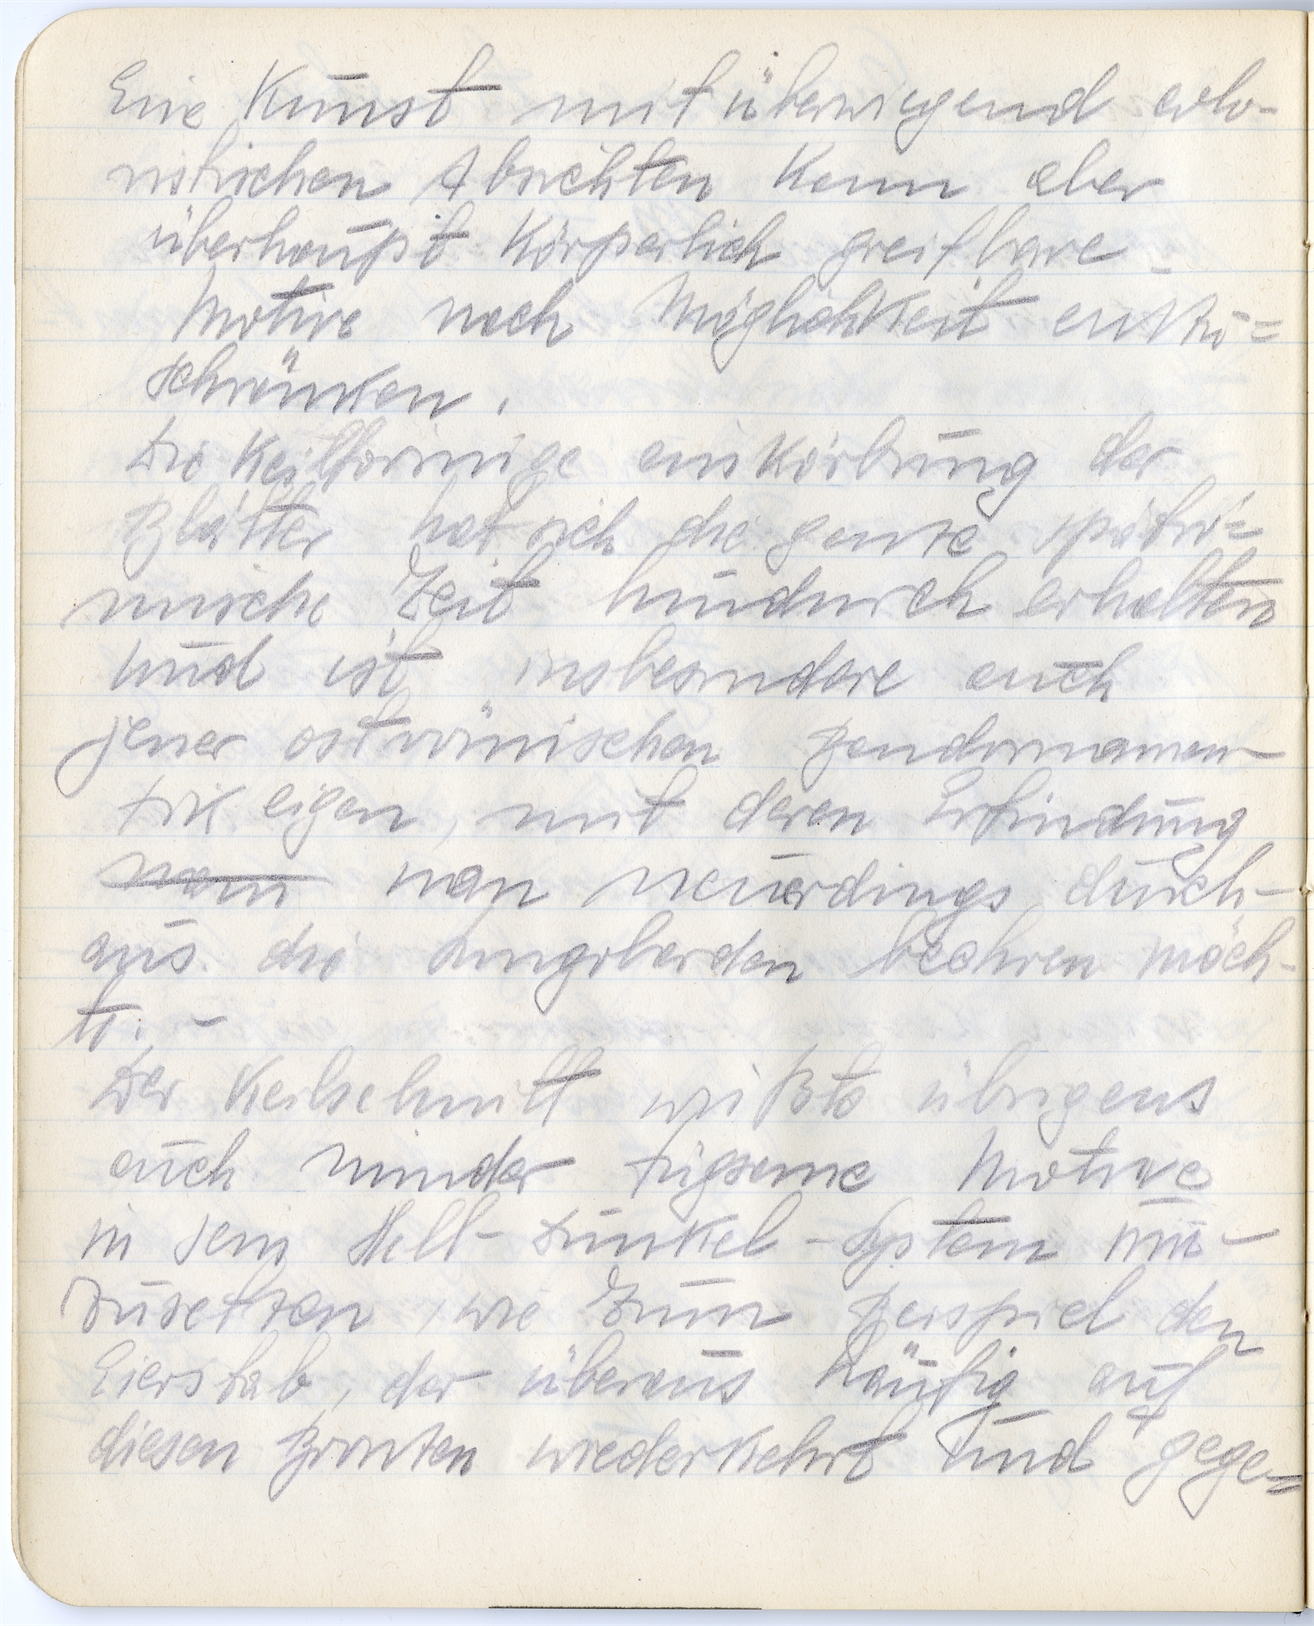 Eine Kunst mit überwiegend colo-
ristischen Absichten kann aber
überhaupt körperlich greifbare
Motive nach Möglichkeit einzu=
schränken.
Die Keilförmige einkörbung der
Blätter hat sich die ganze spätrö=
mische Zeit hindurch erhalten
und ist insbesondere auch
jener oströmischen Bandornamen-
tik eigen, mit deren Erfindung
man neuerdings durch-
aus die Langobarden beehren möch-
te. –
Der Keilschnitt wußte übrigens
auch minder fügsame Motive
in sein Hell-Dunkel-System um-
zusetzen, wie zum Beispiel den
Eierstab, der überaus häufig auf
diesen Bronzen wiederkehrt und gege=